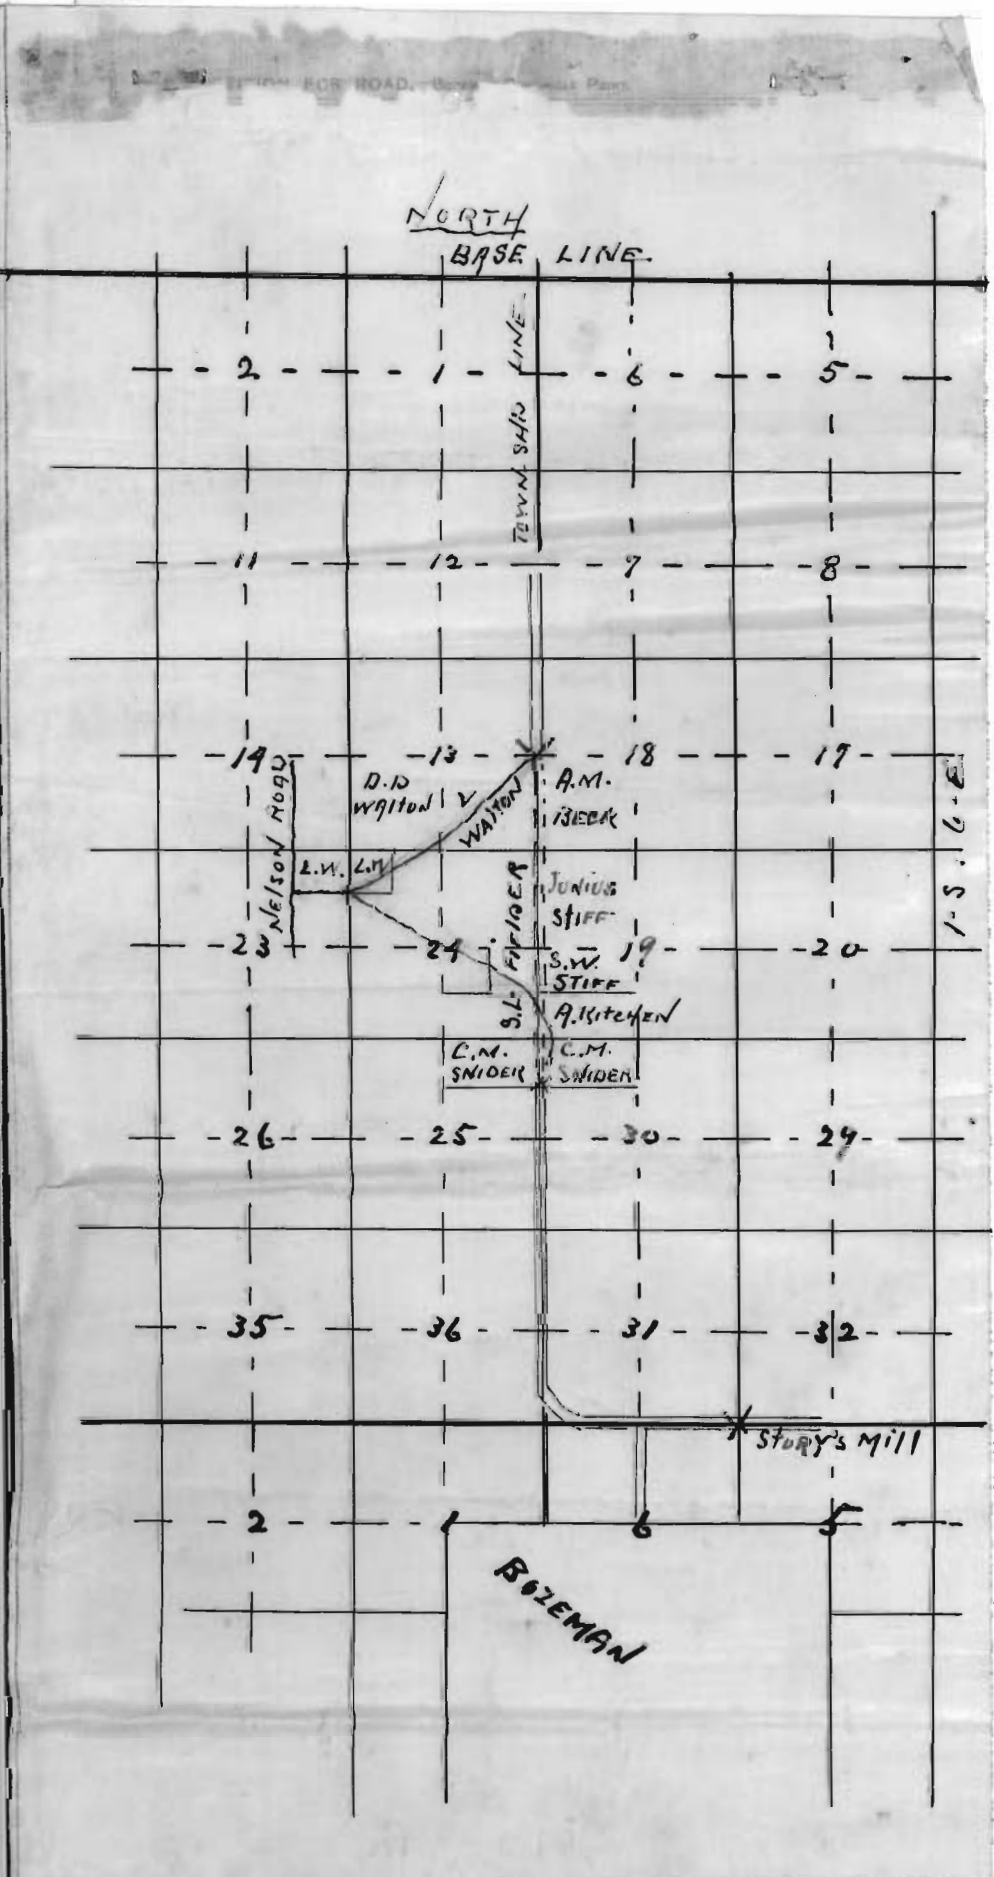 FOR ROAD.
NORTH
BASE LINE.
TOWN-SHIP LINE
2 1 6 5
11 12 7 8
14 13 18 17
NELSON ROAD
D.D
WALTON
V
WALTON
A.M.
BECK
L.W. L.W
S.L.
JUNIUS
STIFF
1-S. 6-E
23 24 19 20
S.W.
STIFF
A. KITCHEN
C.M.
SNIDER
C.M.
SNIDER
26 25 30 29
35 36 31 32
STORY'S MILL
2 1 6 5
BOZEMAN